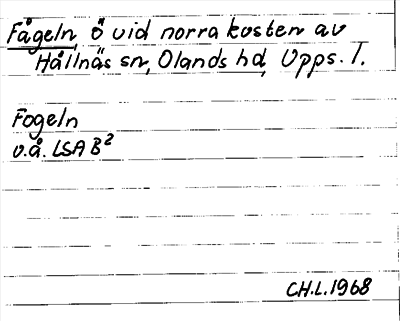 Fågeln, ö vid norra kusten av
Hållnäs sn, Olands hd, Upps. l.
Fogeln
v.å. LSA B²
CH.L. 1968